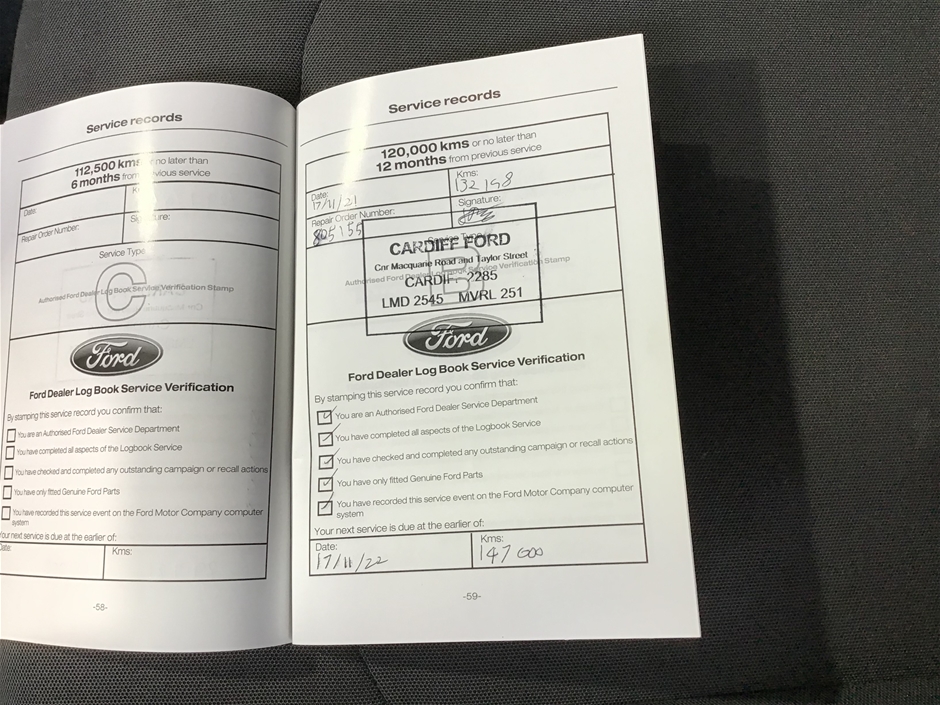 Service records
112,500 kms or no later than
6 months from previous service
Date:
Repair Order Number:
Signature:
Service Type
C
Authorised Ford Dealer Log Book Service Verification Stamp
Ford
Ford Dealer Log Book Service Verification
By stamping this service record you confirm that:
You are an Authorised Ford Dealer Service Department
You have completed all aspects of the Logbook Service
You have checked and completed any outstanding campaign or recall actions
You have only fitted Genuine Ford Parts
You have recorded this service event on the Ford Motor Company computer
system
Your next service is due at the earlier of:
Date:
Kms:
-58-
Service records
120,000 kms or no later than
12 months from previous service
Date:
17/11/21
Kms:
132 198
Repair Order Number:
825155
Signature:
Service Type
B
Authorised Ford Dealer Log Book Service Verification Stamp
CARDIFF FORD
Cnr Macquarie Road and Taylor Street
CARDIFF 2285
LMD 2545 MVRL 251
Ford
Ford Dealer Log Book Service Verification
By stamping this service record you confirm that:
You are an Authorised Ford Dealer Service Department
You have completed all aspects of the Logbook Service
You have checked and completed any outstanding campaign or recall actions
You have only fitted Genuine Ford Parts
You have recorded this service event on the Ford Motor Company computer
system
Your next service is due at the earlier of:
Date:
17/11/22
Kms:
147 000
-59-